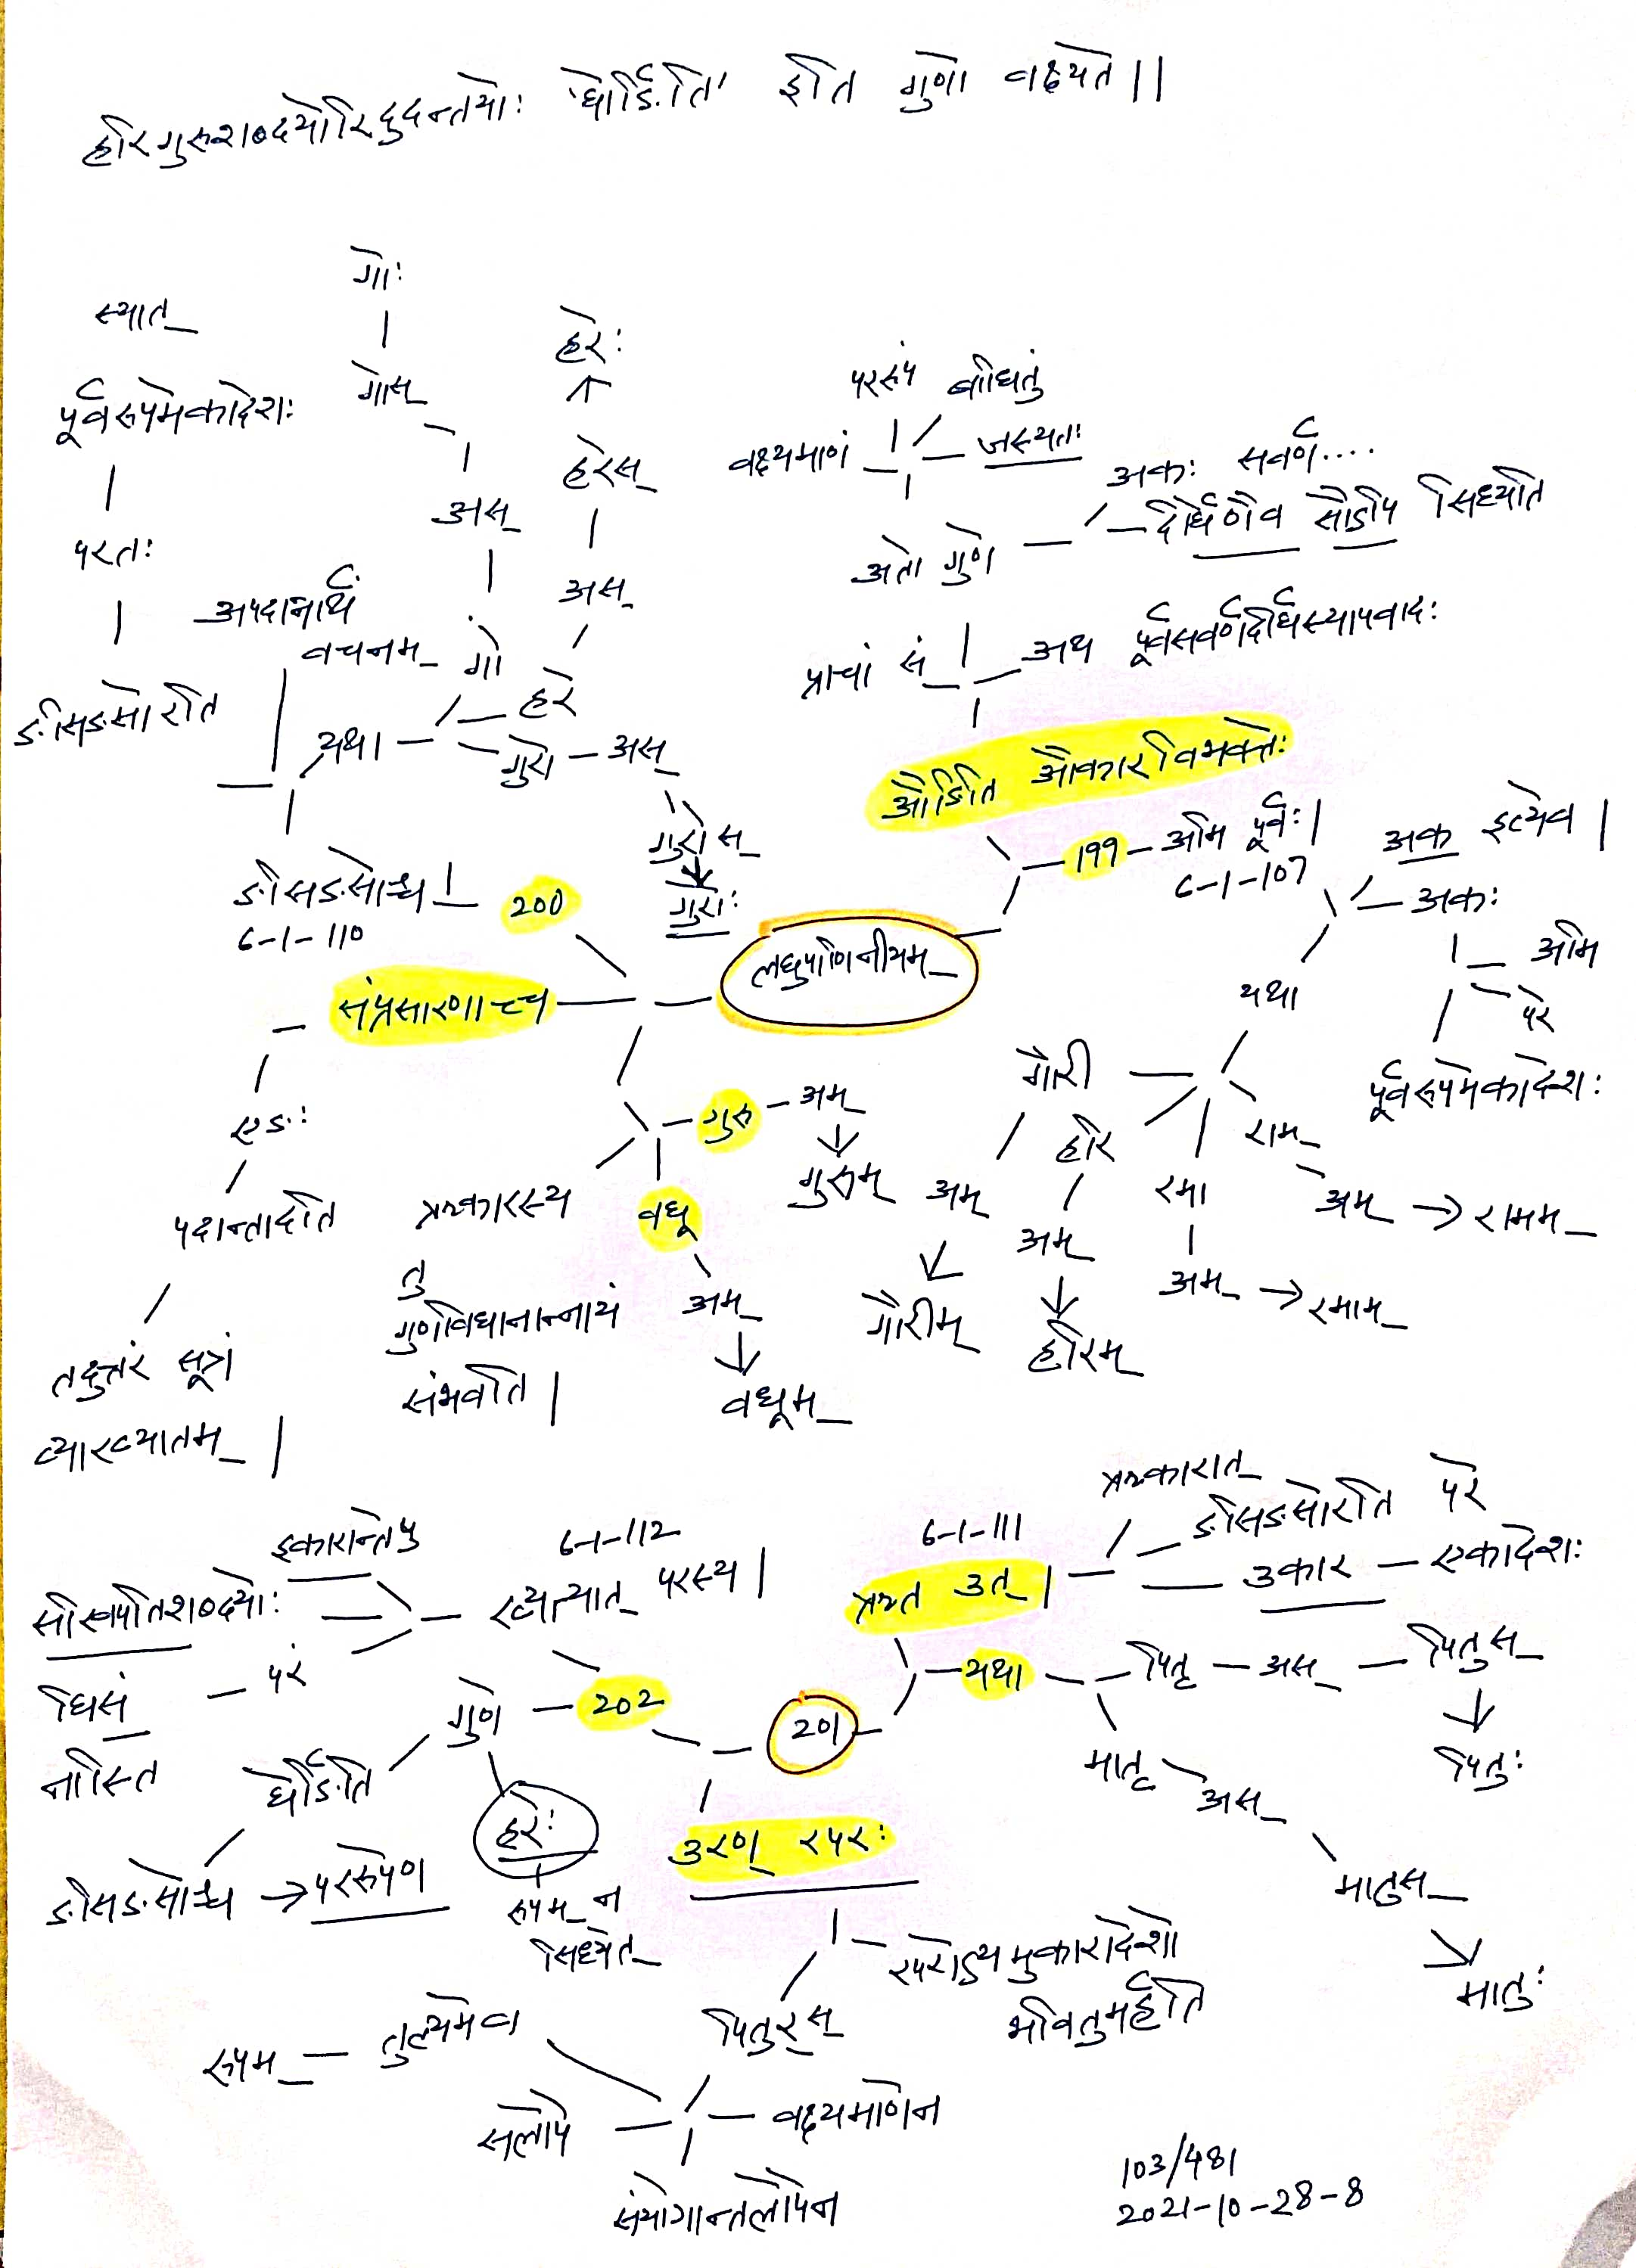 हरिगुरुशब्दयोरिदुदन्तयोः 'घेर्ङिति' इति गुणो वक्ष्यते ||
गोः
गोस्
अस्
गो
हरेः
हरेस्
अस्
हरे
स्यात्
पूर्वरूपमेकादेशः
परतः
ङसिङसोरति
अपदान्तार्थं
वचनम्
यथा
गुरो – अस्
गुरोस्
गुरोः
ङसिङसोश्च |
6-1-110
200
पररूपं बाधितुं
वक्ष्यमाणं
जस्यतः
अतो गुणे
अकः सवर्णे....
दीर्घेणैव सोऽपि सिध्यति
प्राचां सं
अथ पूर्वसवर्णदीर्घस्यापवादः
औङिति औकारविभक्तेः
199 – अमि पूर्वः |
6-1-107
अक इत्येव |
अकः
अमि
परे
पूर्वरूपमेकादेशः
यथा
लघुपाणिनीयम्
संप्रसारणाच्च
एङः
पदान्तादति
तदुत्तरं सूत्रं
व्याख्यातम् |
गुरु – अम्
गुरुम्
वधू
अम्
वधूम्
ऋकारस्य
तु
गुणविधानान्नायं
संभवति |
गौरी
अम्
गौरीम्
हरि
अम्
हरिम्
रमा
अम् → रमाम्
राम
अम् → रामम्
ऋकारात्
ङसिङसोरति परे
उकार – एकादेशः
6-1-111
ऋत उत् |
यथा – पितृ – अस् – पितुस्
पितुः
मातृ
अस्
मातुस्
मातुः
201
इकारान्तेषु
6-1-112
ख्यत्यात् परस्य |
सखिपतिशब्दयोः
परं
घिसं
नास्ति
गुणे – 202
घेर्ङिति
ङसिङसोश्च → पररूपेण
हरेः
रूपम् न
सिध्येत्
उरण् रपरः
रपरोऽयमुकारादेशो
भवितुमर्हति
पितुर् स्
रूपम् – तुल्यमेव
सलोपे
वक्ष्यमाणेन
संयोगान्तलोपेन
103/481
2021-10-28-8